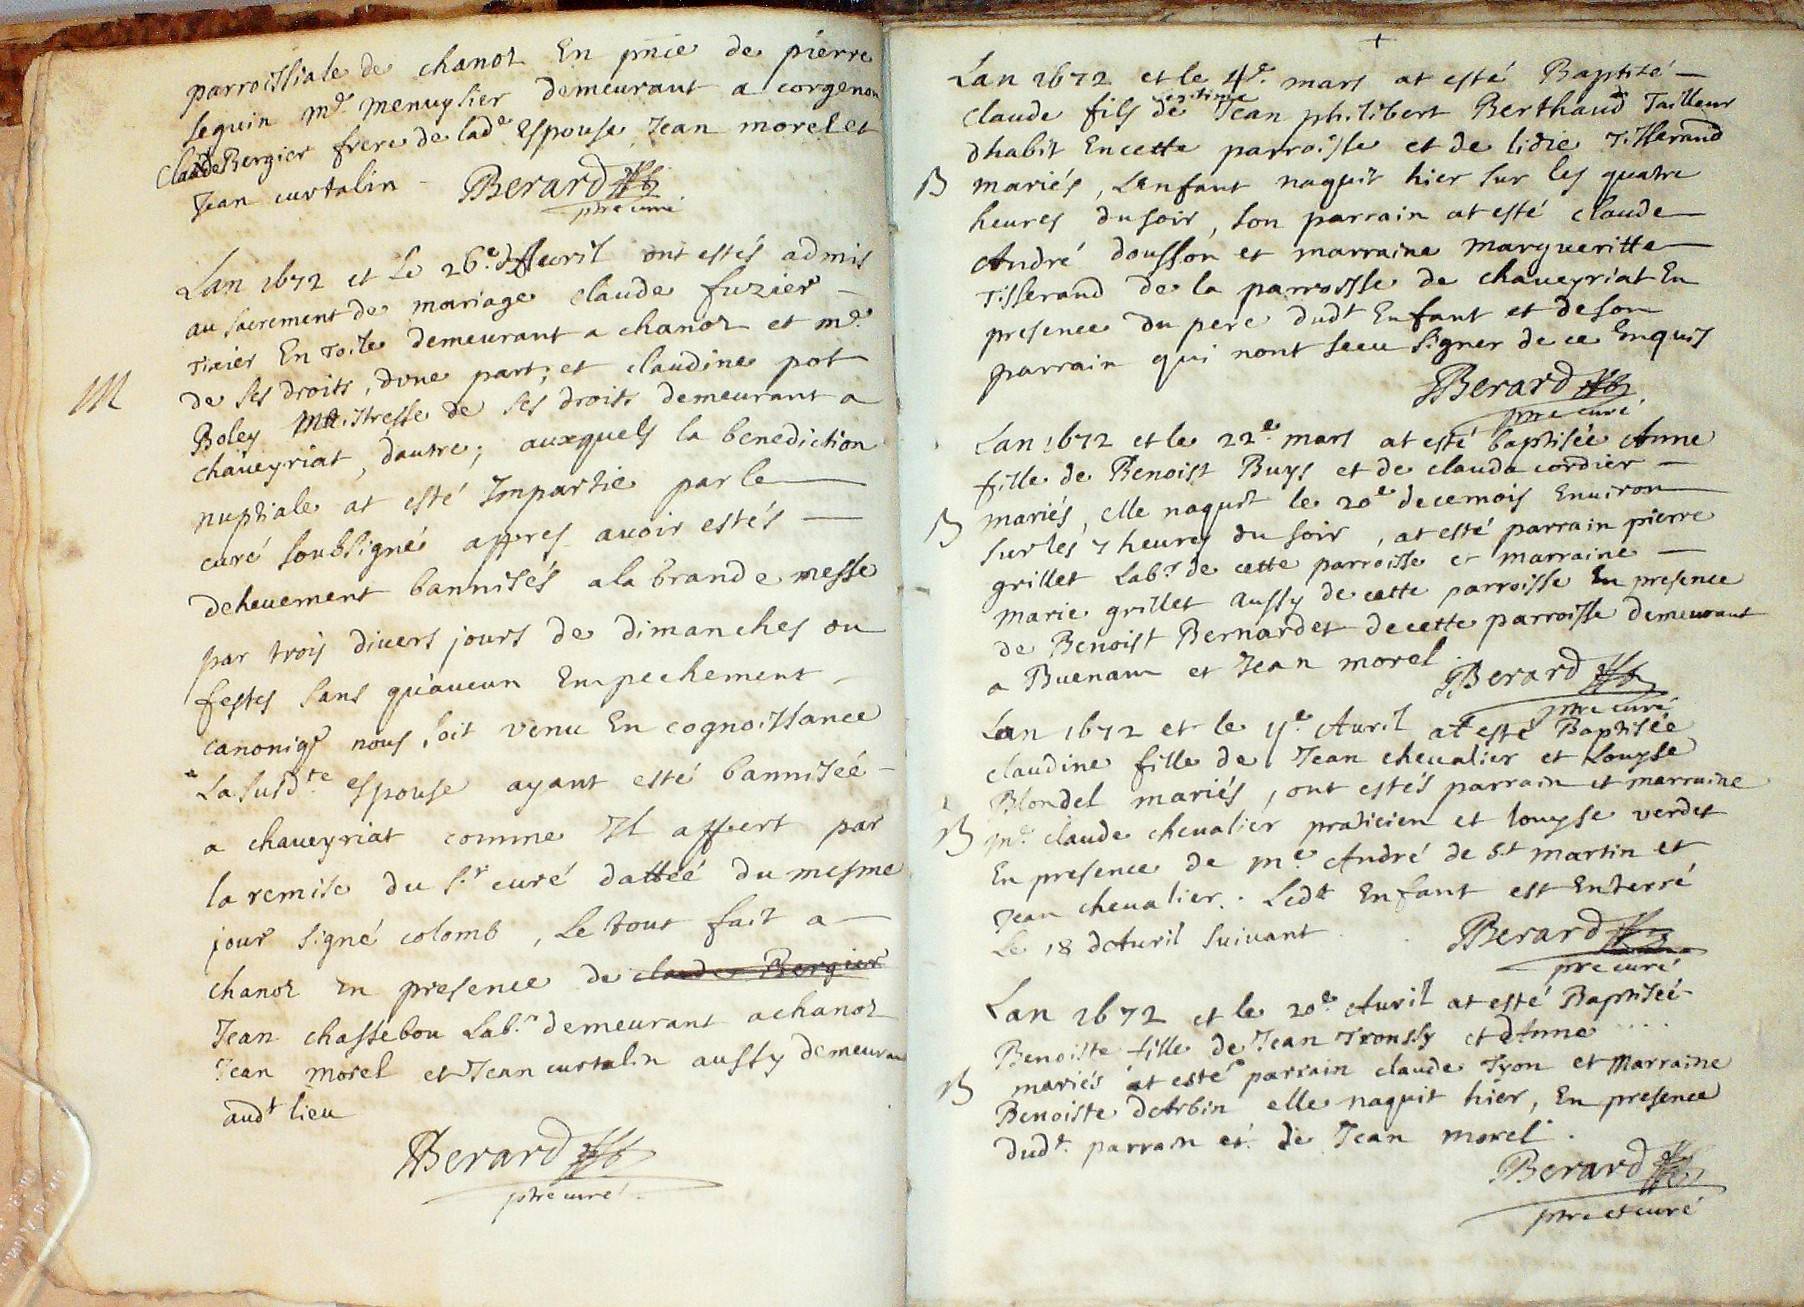 parroissiale de chanoz En pnce de pierre
seguin Me. menuysier demeurant a corgenon
claude Bergier frere de lade Espouse, Jean morel et
Jean curtalin - Berard
ptre curé
Lan 1672 et Le 26.e d'Avvril ont estés admis
au sacrement de mariage claude fuzier -
Tixier En Toile demeurant a chanoz et me.
de ses droits, dune part; et claudine pot
M
Boley Maistresse de ses droits demeurant a
chaveyriat, dautre; auxquels la benediction
nuptiale at esté Impartie par le
curé soubsigné appres avoir estés -
deheuement bannisés a la Grande messe
par trois divers jours de dimanches ou
festes sans qu'aucun Empechement -
canonique nous soit venu En cognoissance
La susd.te espouse ayant esté bannisée -
a chaveyriat comme Il appert par
la remise du S.r curé dattée du mesme
jour signé colomb, Le tout fait a -
chanoz en presence de claude Bergier
Jean chassebou Lab.r demeurant a chanoz
Jean morel et Jean curtalin aussy demeurant
aud.t lieu
Berard
ptre curé
+
Lan 1672 et le 4.e mars at esté Baptisé -
claude fils legitime de Jean philibert Berthaud Tailleur
dhabit En cette parroisse et de lidie Tisserand
B mariés, Lenfant naquit hier sur les quatre
heures du soir, son parrain at esté claude -
André dousson et marraine margueritte -
Tisserand de la parroisse de chaveyriat En
presence du pere dud.t Enfant et de son
parrain qui nont sceu signer de ce Enquis
Berard
ptre curé
Lan 1672 et le 22.e mars at esté baptisée Anne
fille de Benoist Buys et de clauda cordier -
B mariés, elle naquit le 20.e de ce mois Environ
sur les 7 heures du soir, at esté parrain pierre
grillet Lab.r de cette parroisse et marraine -
marie grillet aussy de cette parroisse En presence
de Benoist Bernardet de cette parroisse demeurant
a Buenam et Jean morel. Berard
ptre curé
Lan 1672 et le 11.e Avril at esté Baptisée
claudine fille de Jean chevalier et Louyse
Blondel mariés, ont estés parrain et marraine
B me. claude chevalier praticien et louyse verdet
En presence de me. André de St martin et
Jean chevalier. Led.t Enfant est Enterré
Le 18 dAvril suivant Berard
ptre curé
Lan 1672 et le 20.e Avril at esté Baptisée
Benoiste fille de Jean Troussy et dAnne ....
B mariés at esté parrain claude Tyon et Marraine
Benoiste dArbin elle naquit hier, En presence
dud.t parrain et de Jean morel.
Berard
ptre et curé